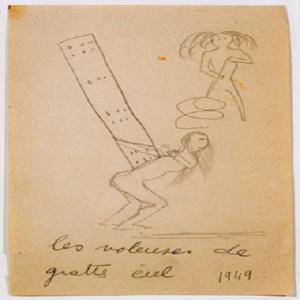 les voleuses de
gratte ciel 1949